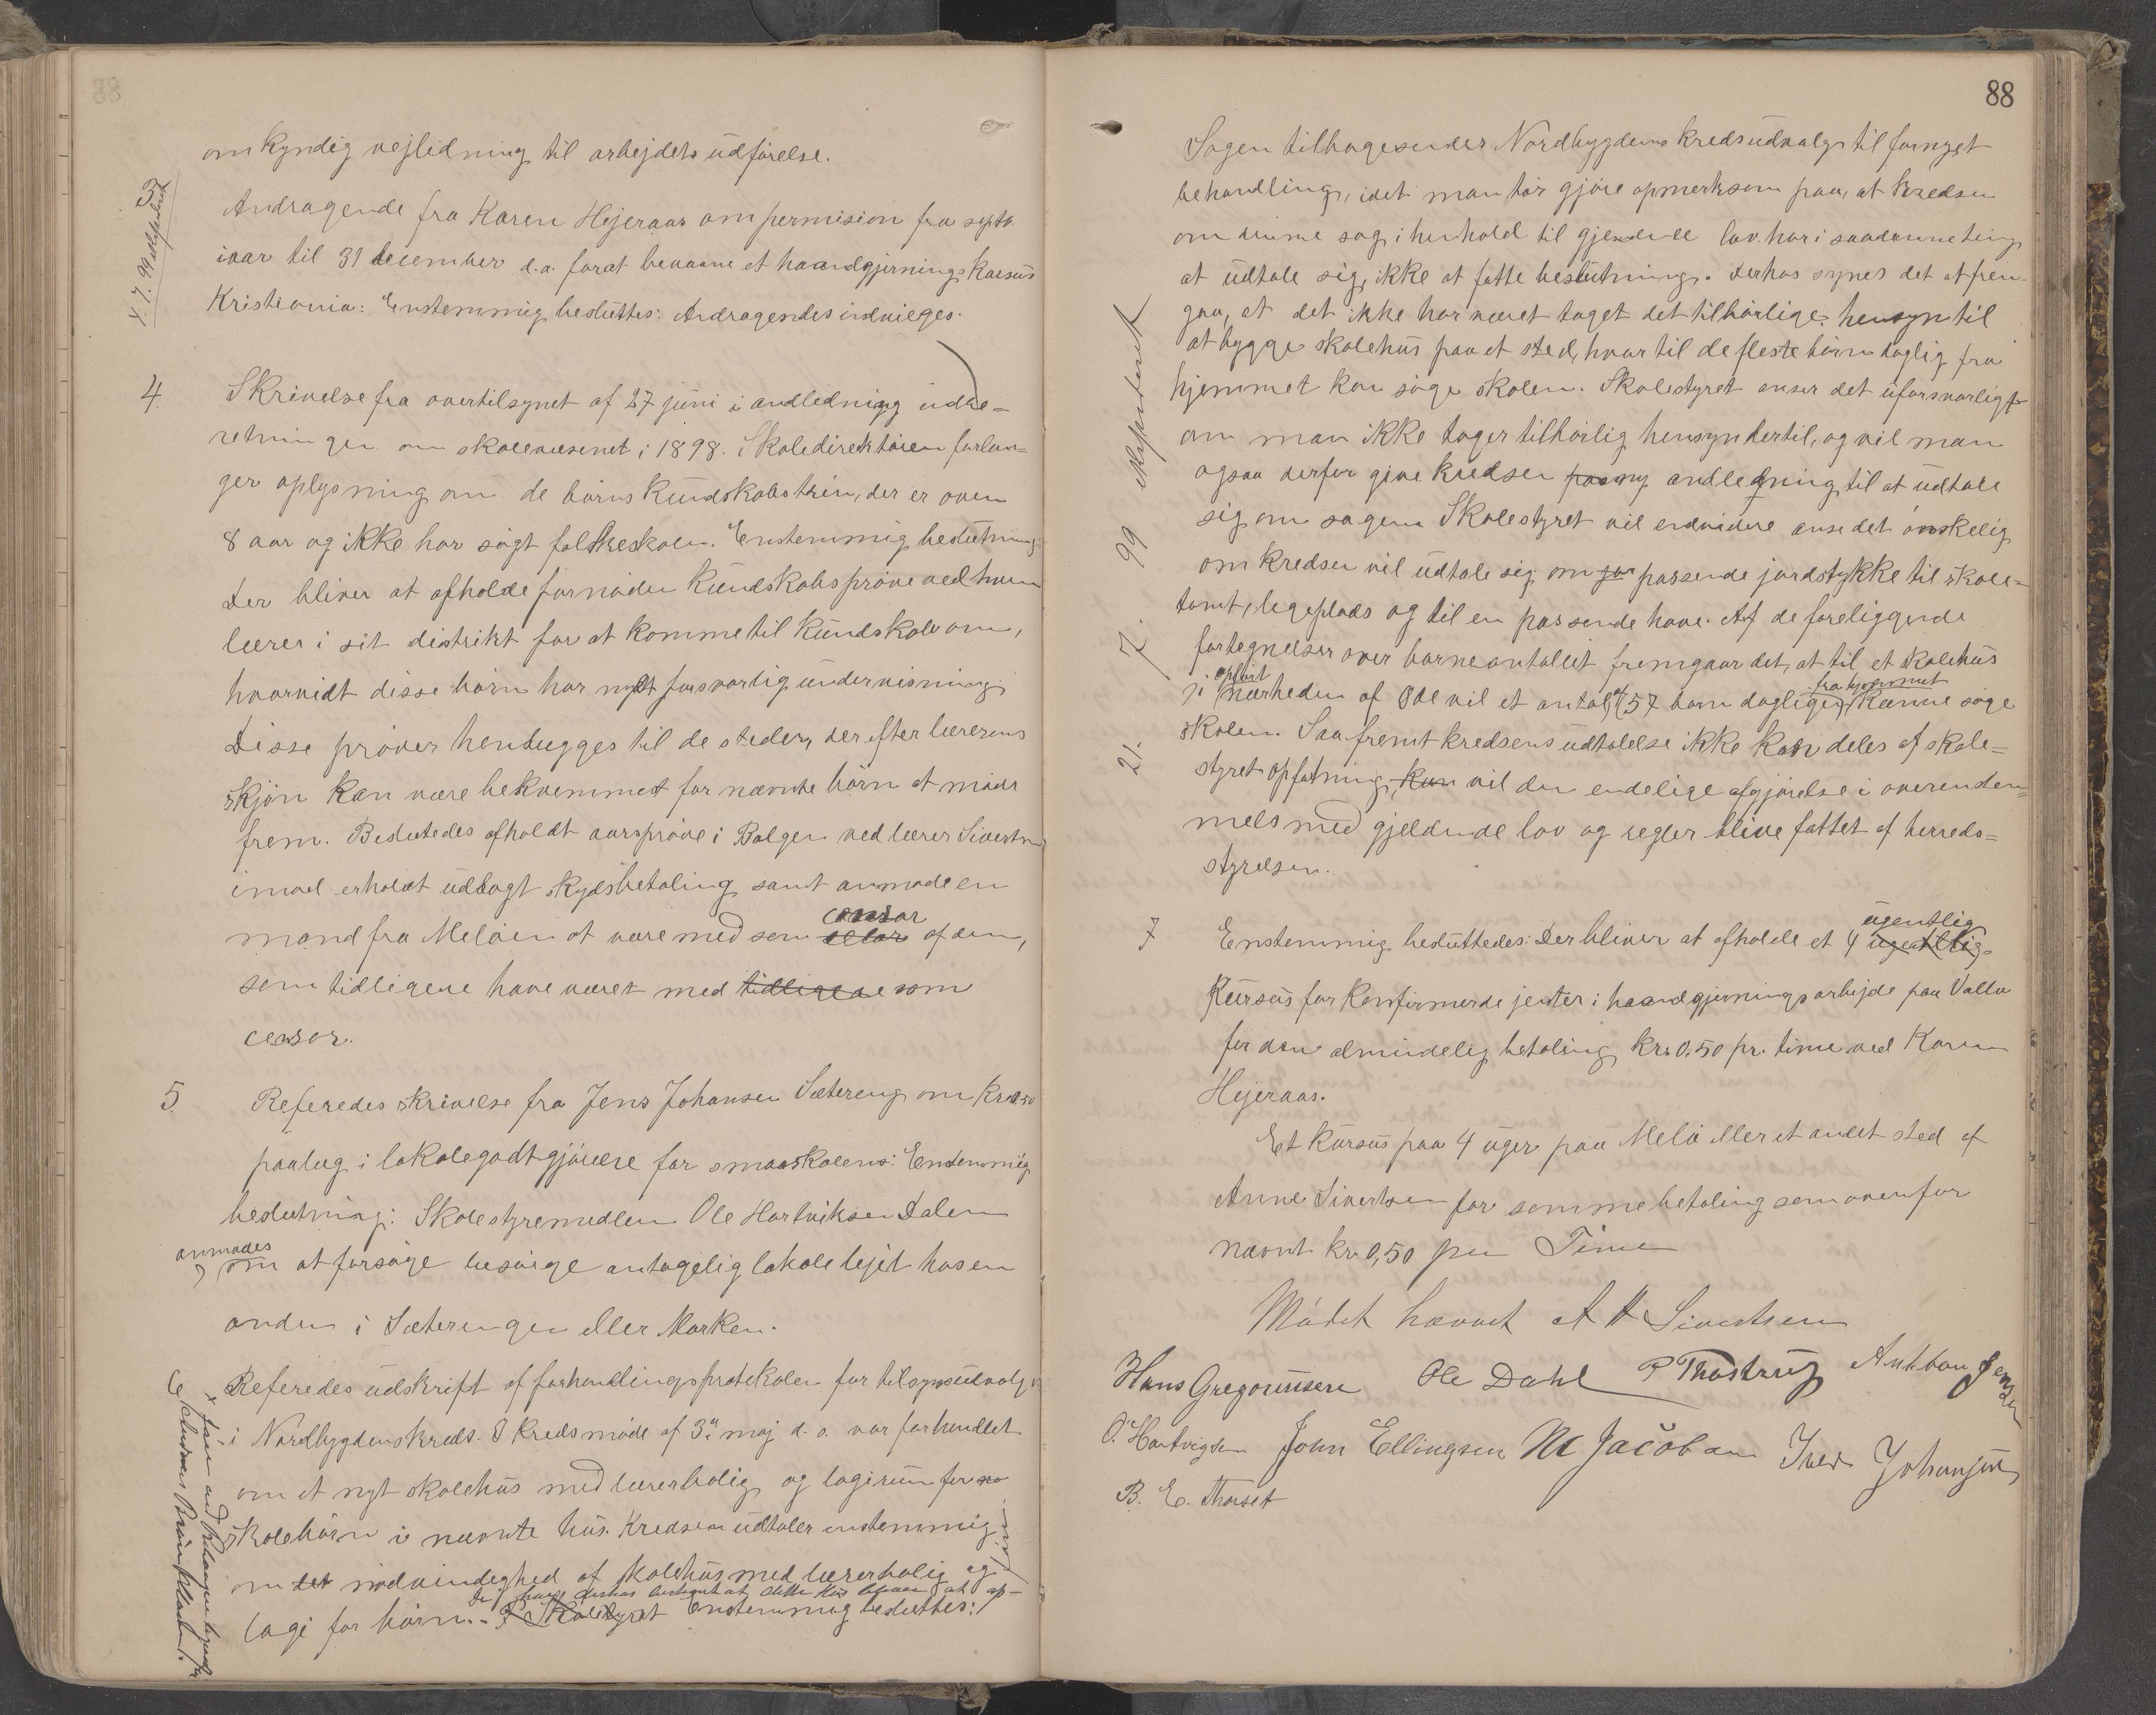 88
om kyndig vejledning til arbejdets udførelse.
3
4.7.99 udskrevet
Andragende fra Karen Hejeraas om permision fra septb.
iaar til 31 december d.a. forat bevaane et haandgjernings kursus
Kristiania: Enstemmig besluttes: Andragendes indvilges.
4.
Skrivelse fra overtilsynet af 27 juni i andledning indbe-
retninger om skolevæsenet i 1898. Skoledirektøren forlan-
ger oplysning om de børns kundskabstrin, der er over
8 aar og ikke har søgt folkeskolen. Enstemmig beslutning:
Der bliver at afholde fornøden kundskabsprøve ved hver
lærer i sit distrikt for at komme til kundskab om,
hvorvidt disse børn har nydt forsvarlig undervisning.
Disse prøver henlægges til de steder, der efter lærerens
skjøn kan være bekvemmest for nævnte børn at møde
frem. Besluttedes afholdt aarsprøve i Bolgen ved lærer Sivertsen
imod erholdt udlagt skydsbetaling samt anmode en
censor
mand fra Meløen at være med som af dem,
som tidligere have været med tidligere som
censor.
5.
Referedes skrivelse fra Jens Johansen Sætereng om kr 0.50
paalæg i lokalegodtgjørelse for smaaskolens: Enstemmig
beslutning: Skolestyremedlem Ole Hartviksen Dalen
anmodes
om at forsøge besørge antagelig lokale lejet hos en
anden i Sæterengen eller Marken.
Referedes udskrift af forhandlingsprotokolen for tilsynsudvalget
i Nordbygdens kreds. I kredsmøde af 3. maj d.a. var forhandlet
om et nyt skolehus med lærerbolig og logirum for
skolebørn i nævnte hus. Kredsen udtaler enstemmig
om det nødvendighed af skolehus med lærerbolig og
de have derhos bestemt at dette hus bliver at op-
logi for børn. - Skolestyret Enstemmig besluttes:
88
Sagen tilbagesendes Nordbygdens kredsudvalg til fornyet
behandling, idet man tør gjøre opmerksom paa, at kredsen
om denne sag i henhold til gjeldende lov har i saadanne ting
at udtale sig, ikke at fatte beslutning. Derhos synes det at frem-
gaa, at det ikke har været taget det tilbørlige hensyn til
at bygge skolehus paa et sted, hvor til de fleste børn daglig fra
hjemmet kan søge skolen. Skolestyret anser det uforsvarligt
om man ikke tager tilbørlig hensyn dertil, og vil man
ogsaa derfor give kredsen paany andledning til at udtale
sig om sagen. Skolestyret vil endvidere anse det ønskelig
om kredsen vil udtale sig om passende jordstykke til skole-
tomt, legeplads og til en passende have. Af de foreliggende
fortegnelser over barneantallet fremgaar det, at til et skolehus
opført fra hjemmet
i nærheden af vil et antal af 57 børn daglig kunne søge
skolen. Saafremt kredsens udtalelse ikke kan deles af skole-
styret opfatning, kan vil den endelige afgjørelse i overenstem-
mels med gjeldende lov og regler blive fattet af herreds-
styrelsen.
21. 7. 99
7
ugentlig
Enstemmig besluttedes: Der bliver at afholde et 4 ugentlig
kursus for konfirmerde jenter i haandgjerningsarbejde paa Valla
for den almindelig betaling kr. 0.50 pr. time ved Karen
Hejeraas.
Et kursus paa 4 uger paa Melø eller et andet sted af
Anne Sivertsen for samme betaling som ovenfor
nævnt kr. 0,50 per Time
Mødet hævet A H Sivertsen
Hans Gregoriusen Ole Dahl P Thastrup Anthon Jensen
O. Hartvigsen John Ellingsen M Jacobsen Iver Johansen
B. E. Thorset